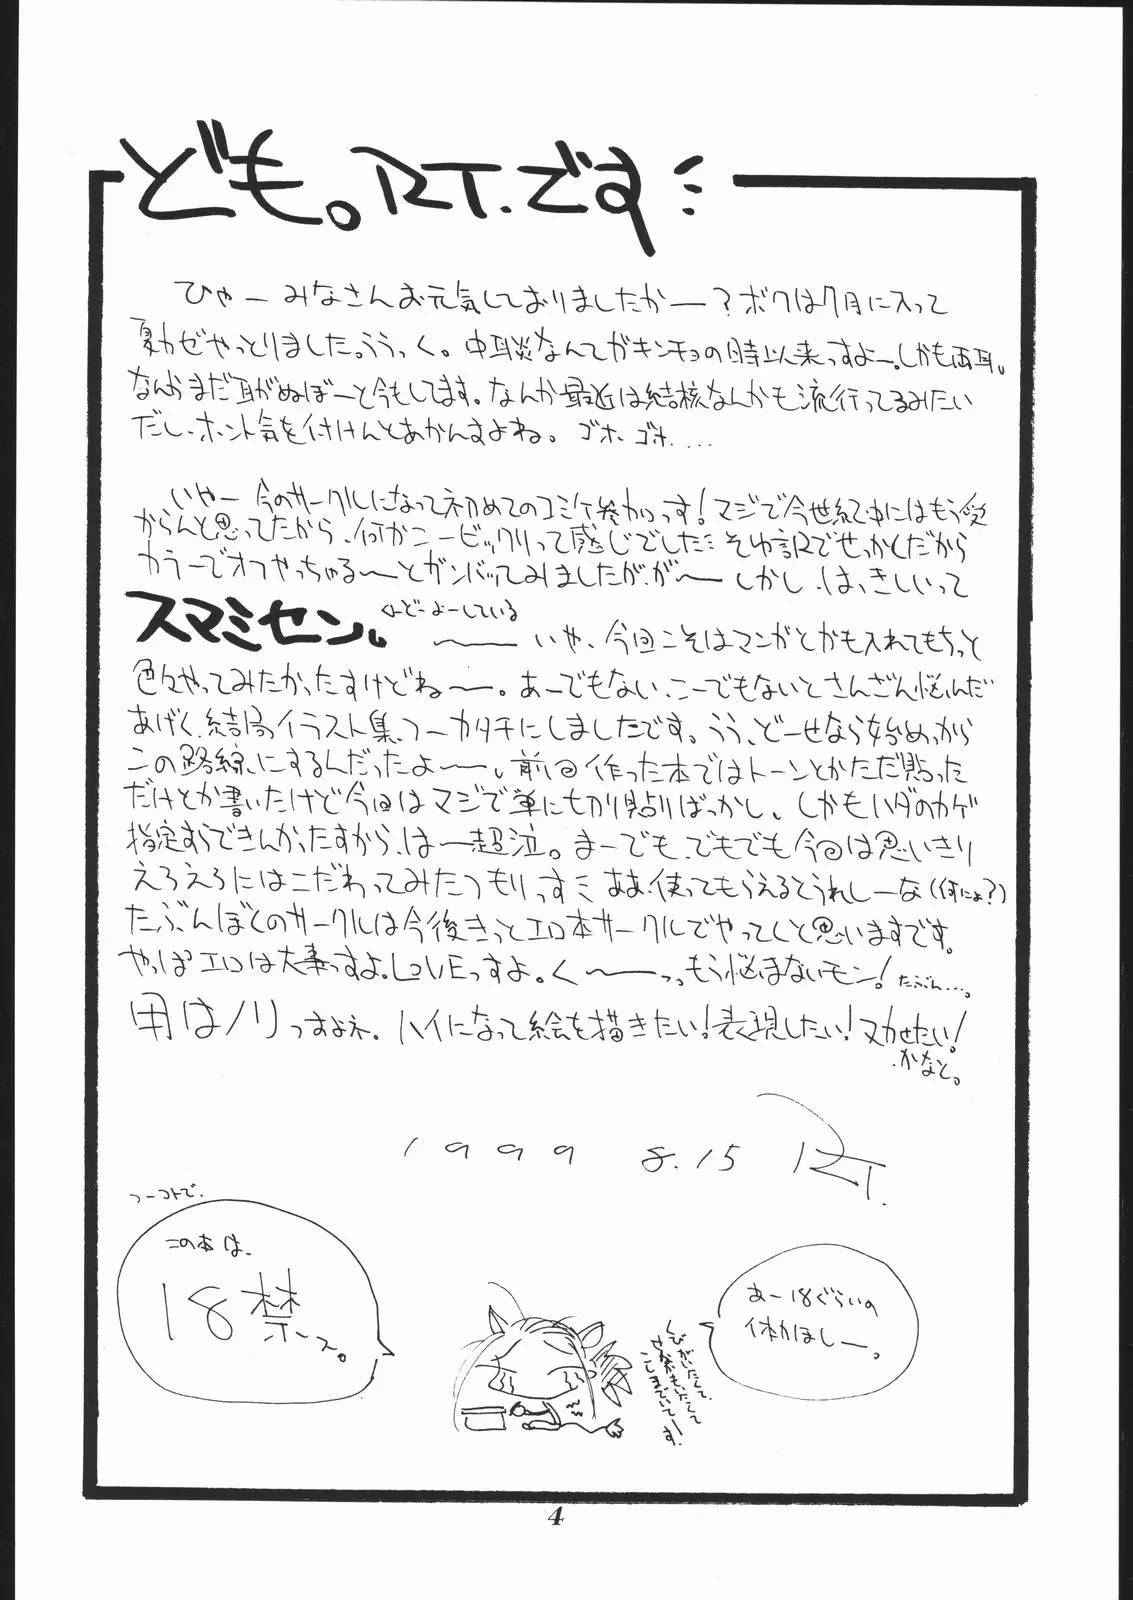 ども。RT.です
ひゃーみなさんお元気しておりましたかー?ボクは7月に入って
夏カゼやっとりました。ううっく。中耳炎なんてガキンチョの時以来っすよー。しかも両耳。
なんかまだ耳がぬぼーと今もしてます。なんか最近は結核なんかも流行ってるみたい
だし、ホント気を付けんとあかんすよね。ゴホ、ゴホ....
いやー今のサークルになって初めてのコミケ参加っす!マジで今世紀中にはもう受
からんと思ってたから、何かこービックリって感じでした そゆ訳でせっかくだから
カラーでオフやっちゃる〜とガンバッてみましたが、が〜しかし、は、きしいって
スマミセン。
いや、今回こそはマンガとかも入れてもちっと
色々やってみたかったすけどね〜。あーでもない、こーでもないとさんざん悩んだ
あげく、結局イラスト集、つーカタチにしましたです。うう、どーせなら始めっから
この路線にするんだったよ〜。前回作った本ではトーンとかただ貼った
だけとか書いたけど今回はマジで単に切り貼りばっかし、しかもハダのカゲ
指定すらできんかったすから、はー超泣。まーでも、でもでも今回は思いきり
えろえろにはこだわってみたつもりっす ああ、使ってもらえるとうれしーな(何によ?)
たぶんぼくのサークルは今後きっとエロ本サークルでやってくと思いますです。
やっぱエロは大事っすよ。LOVEっすよ。く〜っ、もう悩まないモン!たぶん...。
用はノリっすよネ。ハイになって絵を描きたい!表現したい!ヌカせたい!
かなと。
1999 8.15 RT.
つーコトで、
この本は、
18禁っス。
あー18ぐらいの
体力ほしー。
くびがいたくて、
せなかもいたくて
こしまでいてーす。
4